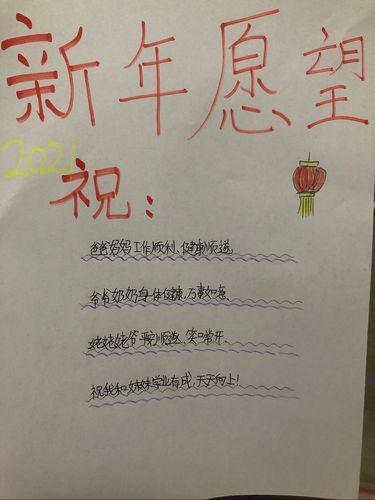 新年愿望
2021
祝：
爸爸妈妈工作顺利、健康顺遂。
爷爷奶奶身体健康，万事如意。
姥姥姥爷平安顺遂、笑口常开。
祝我和妹妹学业有成，天天向上！